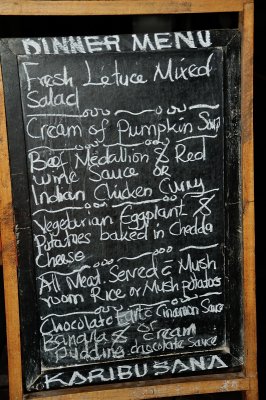 DINNER MENU
Fresh Letuce Mixed
Salad
Cream of Pumpkin Soup
Beef Medallion & Red
wine Sauce or
Indian Chicken Curry
Vegeturian Eggplant &
Potatoes baked in Chedda
Cheese
All Meal Served c Mush
room Rice or Mush Potatoes
Chocolate Tarte Cinamon Sauce
or
Banana & Cream
Pudding chocolate Sauce
KARIBU SANA